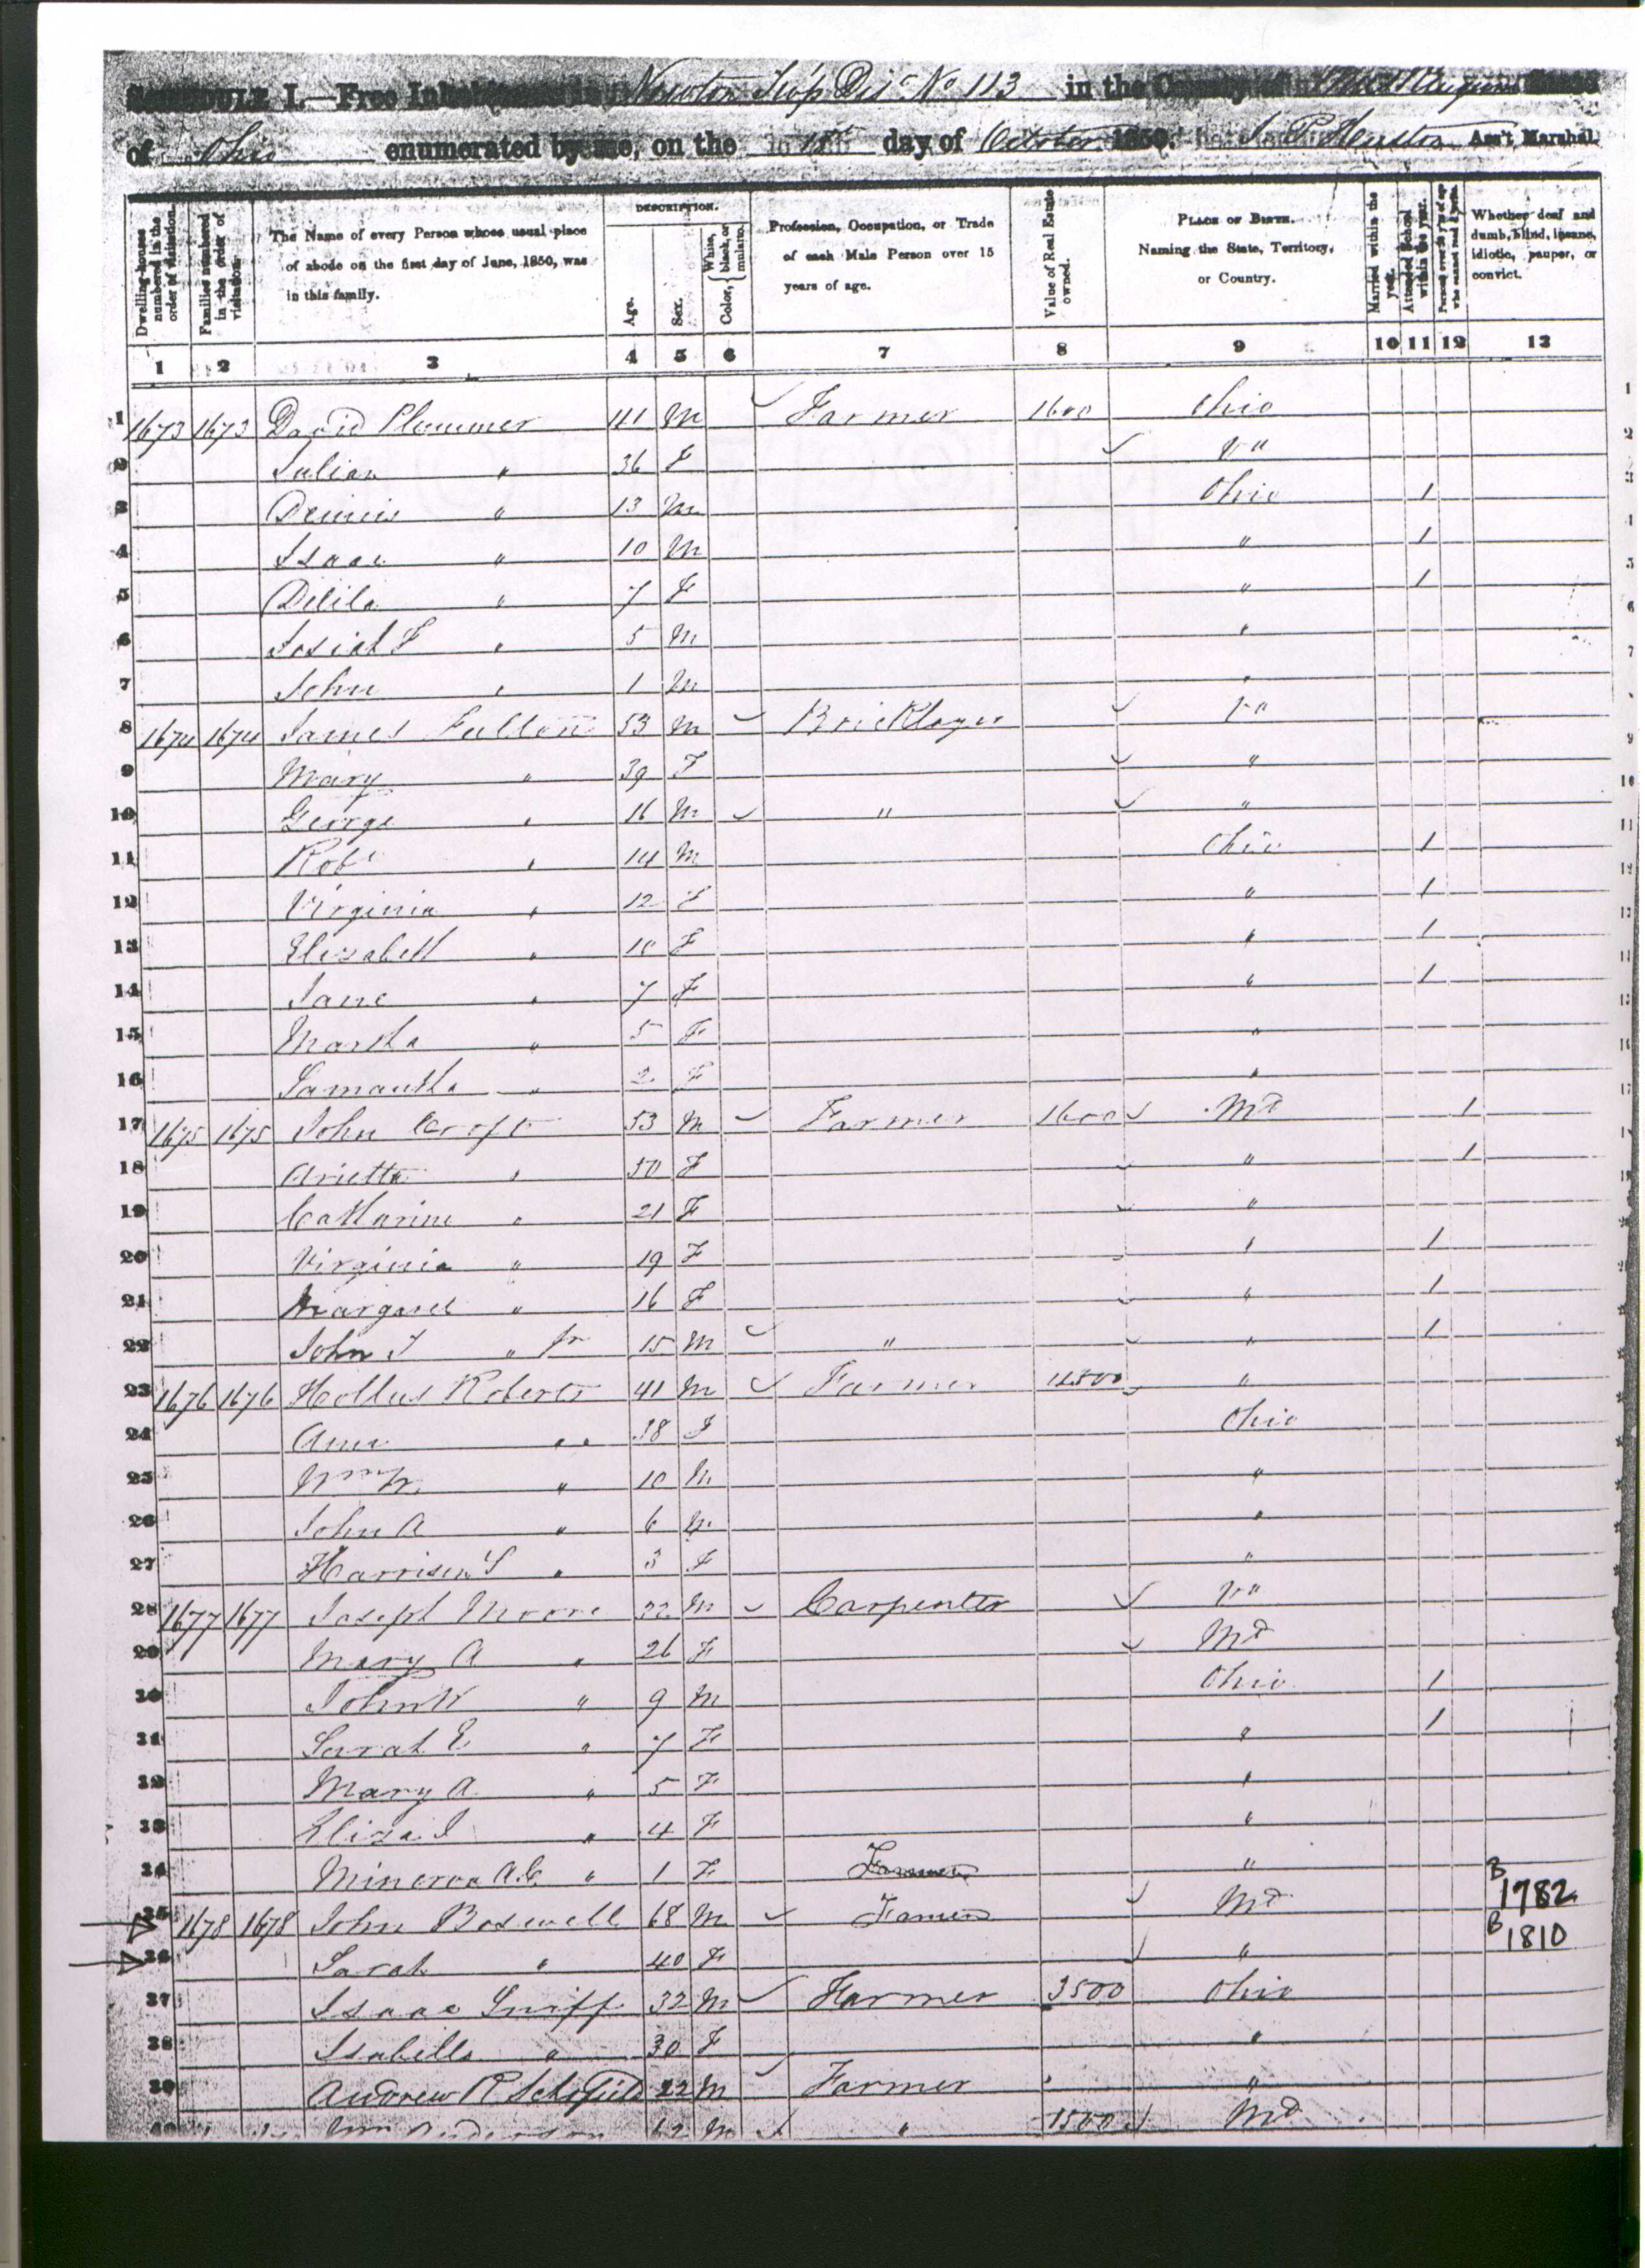 SCHEDULE I. Free Inhabitants in Newton in the County of State
of Ohio enumerated by me, on the day of October 1850. Ass't Marshal.
Dwelling-houses numbered in the order of visitation.
Families numbered in the order of visitation.
The Name of every Person whose usual place of abode on the first day of June, 1850, was in this family.
DESCRIPTION.
Age.
Sex.
Color, { White, black, or mulatto.
Profession, Occupation, or Trade of each Male Person over 15 years of age.
Value of Real Estate owned.
PLACE OF BIRTH. Naming the State, Territory, or Country.
Married within the year.
Attended School within the year.
Persons over 20 y'rs of age who cannot read & write.
Whether deaf and dumb, blind, insane, idiotic, pauper, or convict.
1 2 3 4 5 6 7 8 9 10 11 12 13
1 1673 1673 David Plummer 41 M Farmer 1600 Ohio 1
2 Julian " 36 F Va 2
3 Dennis " 13 M Ohio 1 3
4 Isaac " 10 M " 1 4
5 Delila " 7 F " 1 5
6 Josiah F " 5 M " 6
7 John " 1 M " 7
8 1674 1674 James Fulton 53 M Bricklayer Va
9 Mary " 39 F " 9
10 George " 16 M " " 10
11 Robt " 14 M Ohio 1 11
12 Virginia " 12 F " 1
13 Elizabeth " 10 F " 1
14 Jane " 7 F " 1
15 Martha " 5 F "
16 Samantha " 2 F "
17 1675 1675 John Croft 53 M Farmer 1600 Md 1
18 Arietta " 50 F " 1
19 Catharine " 21 F "
20 Virginia " 19 F " 1
21 Margaret " 16 F " 1
22 John T " Jr 15 M " " 1
23 1676 1676 Hollus Roberts 41 M Farmer 4500 "
24 Ann " 38 F Ohio
25 Wm " 10 M "
26 John A " 6 M "
27 Harrison S " 3 F "
28 1677 1677 Joseph Moore 32 M Carpenter Va
29 Mary A " 26 F Md
30 John W " 9 M Ohio 1
31 Sarah E " 7 F " 1
32 Mary A. " 5 F "
33 Eliza J " 4 F "
34 Minerva A.C. " 1 F Farmer "
35 1678 1678 John Boswell 68 M Farmer Md B 1782
36 Sarah " 40 F " B 1810
37 Isaac Sniff 32 M Farmer 3500 Ohio
38 Isabella " 30 F "
39 Andrew R 22 M Farmer "
40 Wm Anderson 62 M " 1500 Md